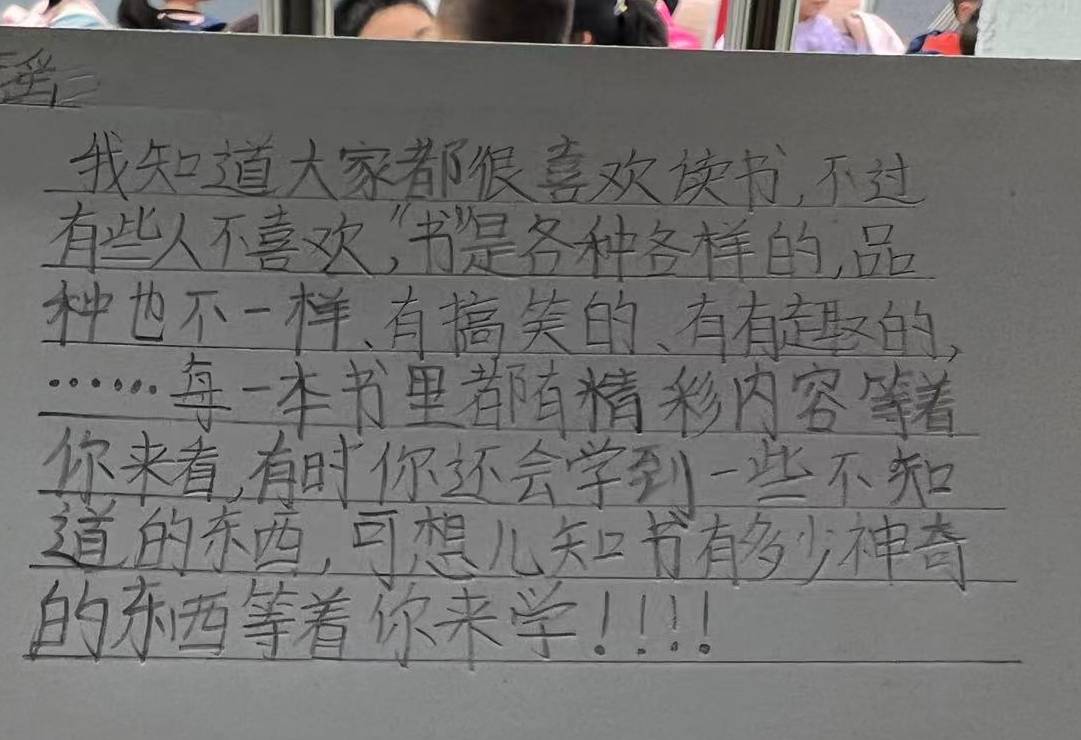 我知道大家都很喜欢读书,不过
有些人不喜欢,“书”是各种各样的,品
种也不一样、有搞笑的、有有趣的,
……每一本书里都有精彩内容等着
你来看,有时你还会学到一些不知
道的东西,可想儿知书有多少神奇
的东西等着你来学!!!!